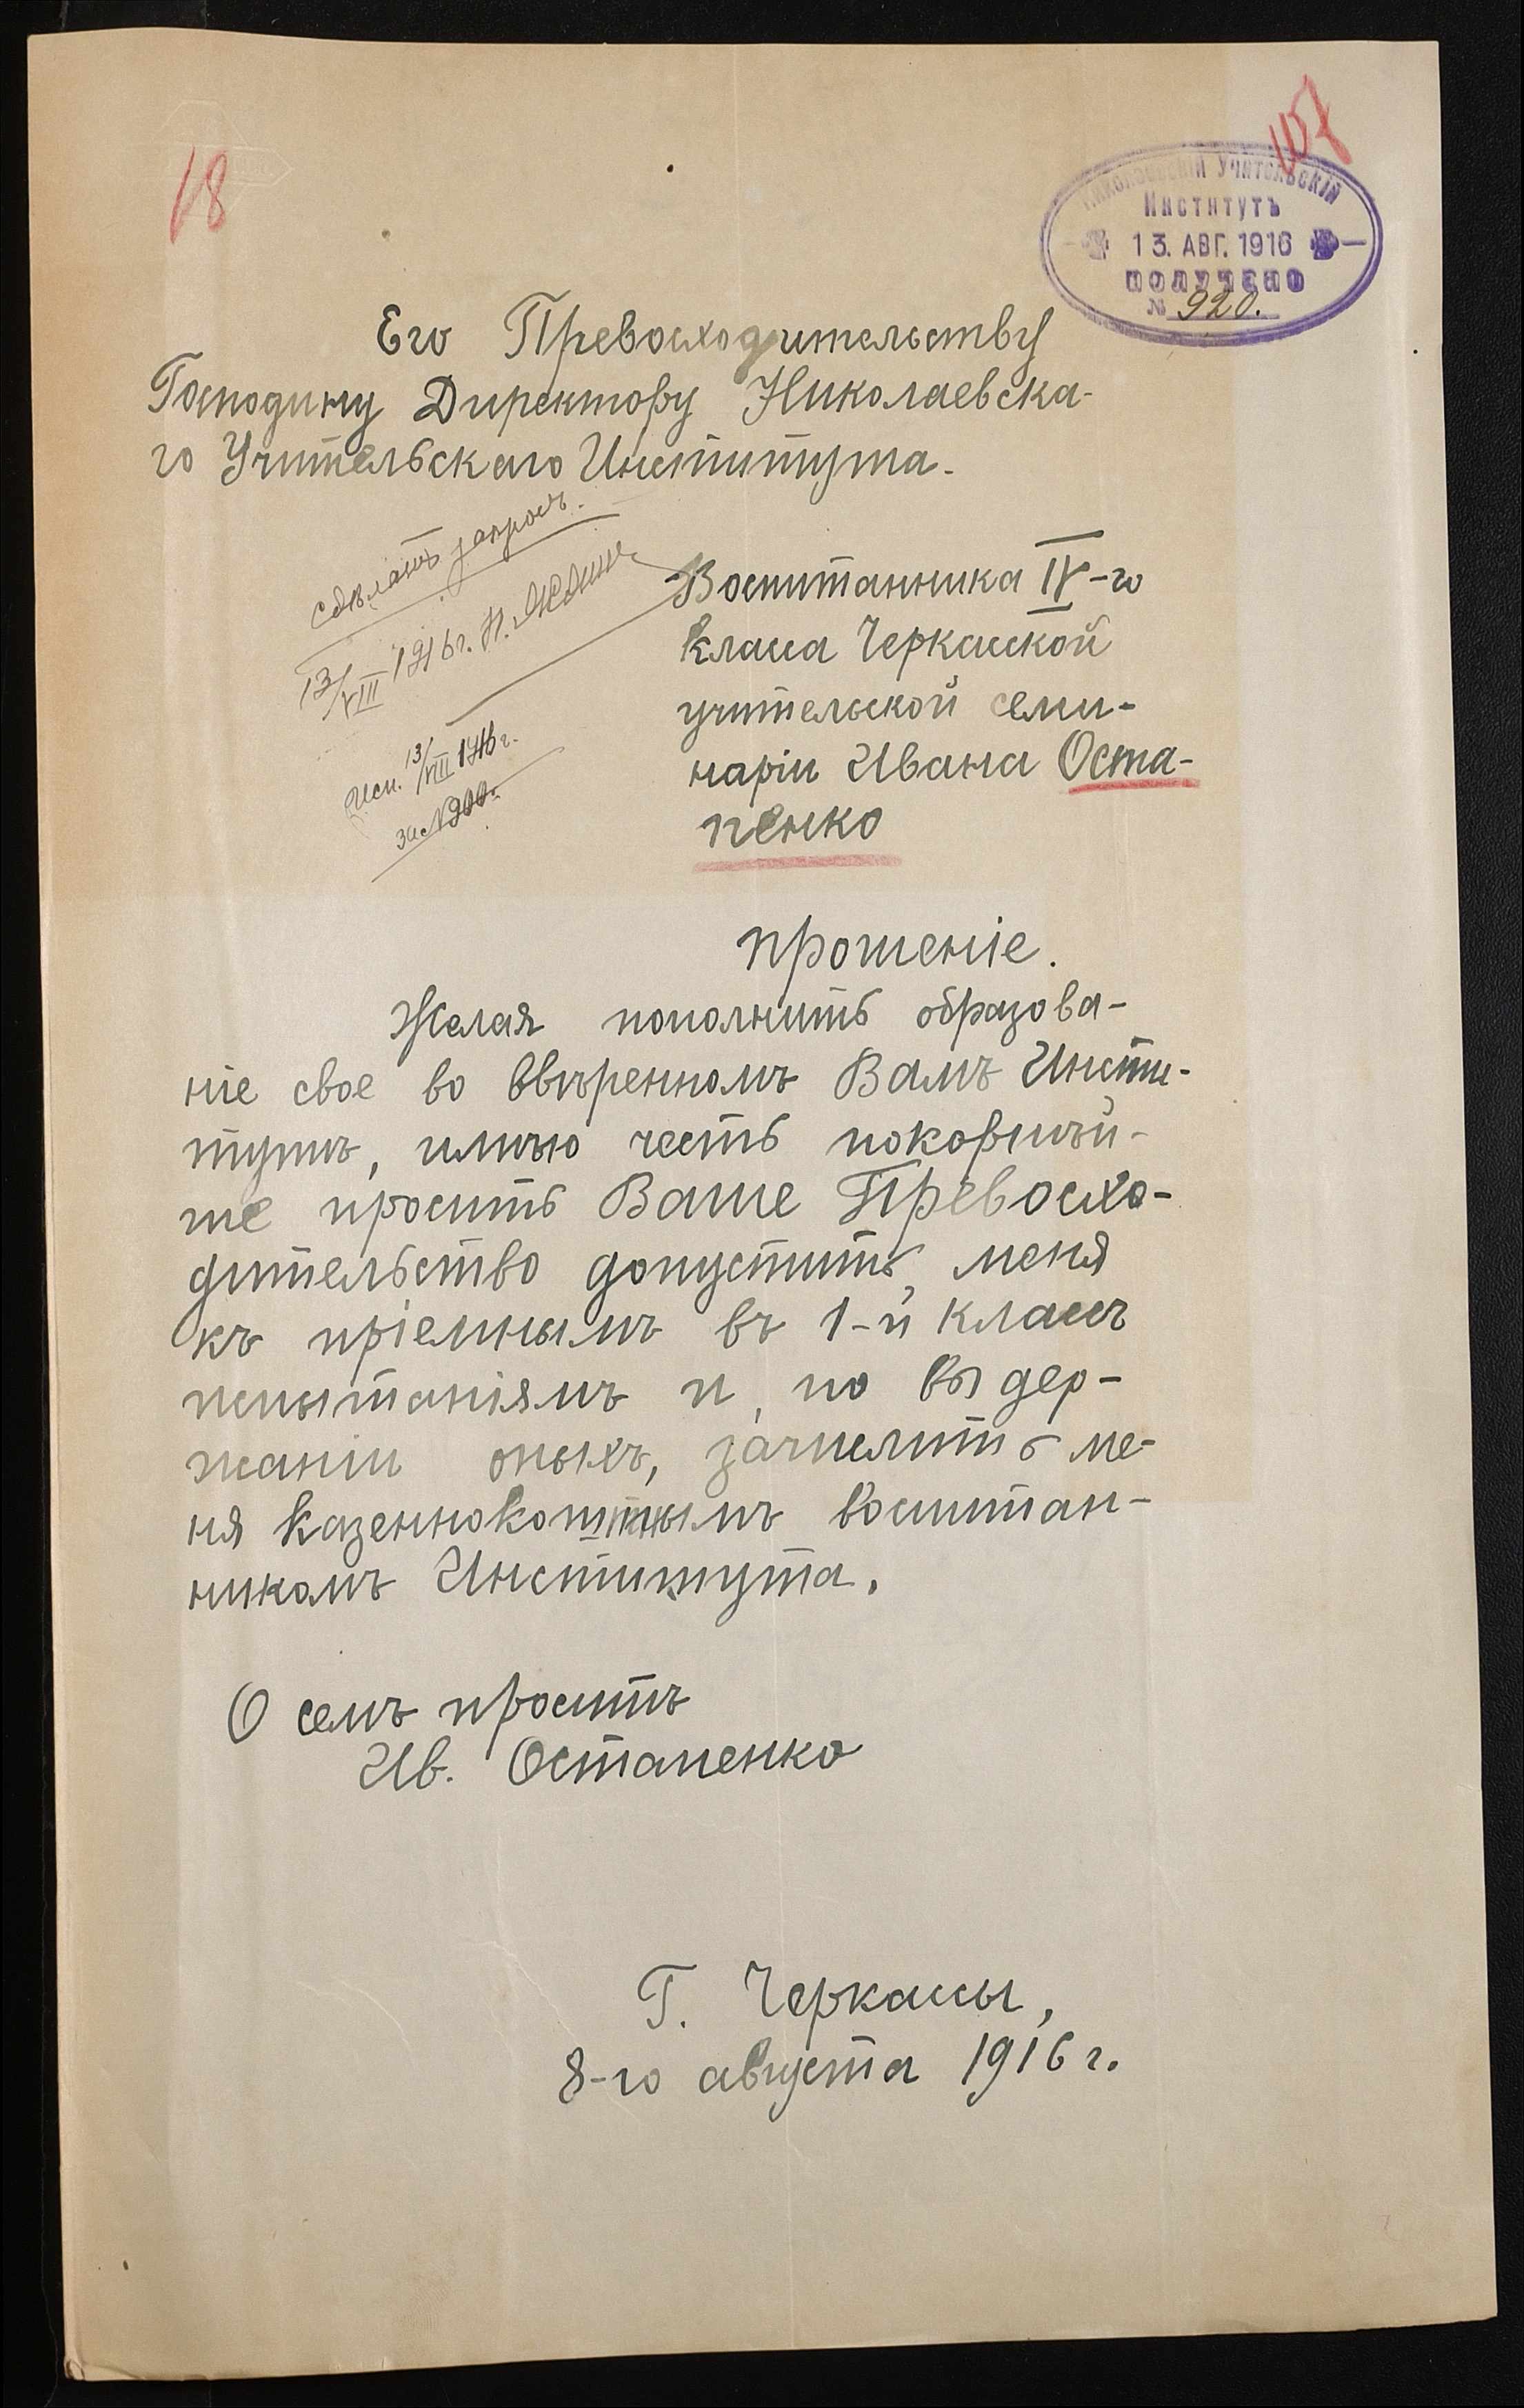 18
107
Николаевскій Учительскій
Институтъ
13. АВГ. 1916
получено
№ 920.
Его Превосходительству
Господину Директору Николаевска-
го Учительскаго Института.
Сдѣлать запросъ.
13/VIII 1916 г. Н.
Исп. 13/VIII 1916 г.
за № 900.
Воспитанника IV-го
класса Черкасской
учительской семи-
наріи Ивана Оста-
пенко
прошеніе.
Желая пополнить образова-
ніе свое во ввѣренномъ Вамъ Инсти-
тутѣ, имѣю честь покорнѣй-
ше просить Ваше Превосхо-
дительство допустить меня
къ пріемнымъ въ 1-й классъ
испытаніямъ и, по выдер-
жаніи оныхъ, зачислить ме-
ня казеннокоштнымъ воспитан-
никомъ Института.
О семъ проситъ
Ив. Остапенко
Г. Черкассы,
8-го августа 1916 г.